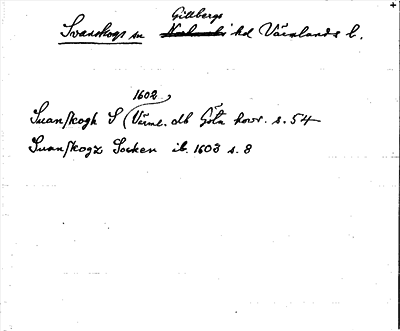 Gillbergs
Svanskogs sn hd Värmlands l.
1602
Suanskogh S (Värml. db Göta hovr. s. 54
Suanskogz Socken ib. 1603 s. 8